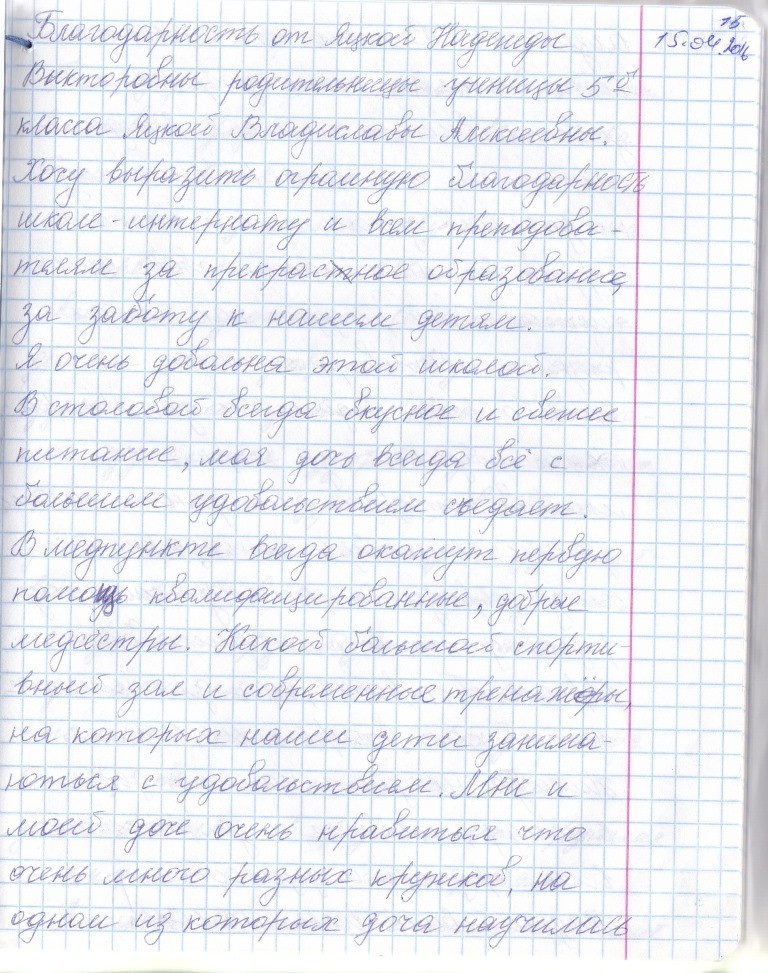 15.
15.04.2016
Благодарность от Яцкой Надежды
Викторовны родительницы ученицы 5 б
класса Яцкой Владиславы Алексеевны.
Хочу выразить огромную благодарность
школе-интернату и всем преподова-
телям за прекрастное образование,
за заботу к нашим детям.
Я очень довольна этой школой.
В столовой всегда вкусное и свежее
питание, моя дочь всегда всё с
большим удовольствием съедает.
В медпункте всегда окажут первую
помощь квалифицированные, добрые
медсестры. Какой большой спорти-
вный зал и современные тренажёры,
на которых наши дети занима-
ються с удовольствием. Мне и
моей доче очень нравиться что
очень много разных кружков, на
одном из которых доча научилась